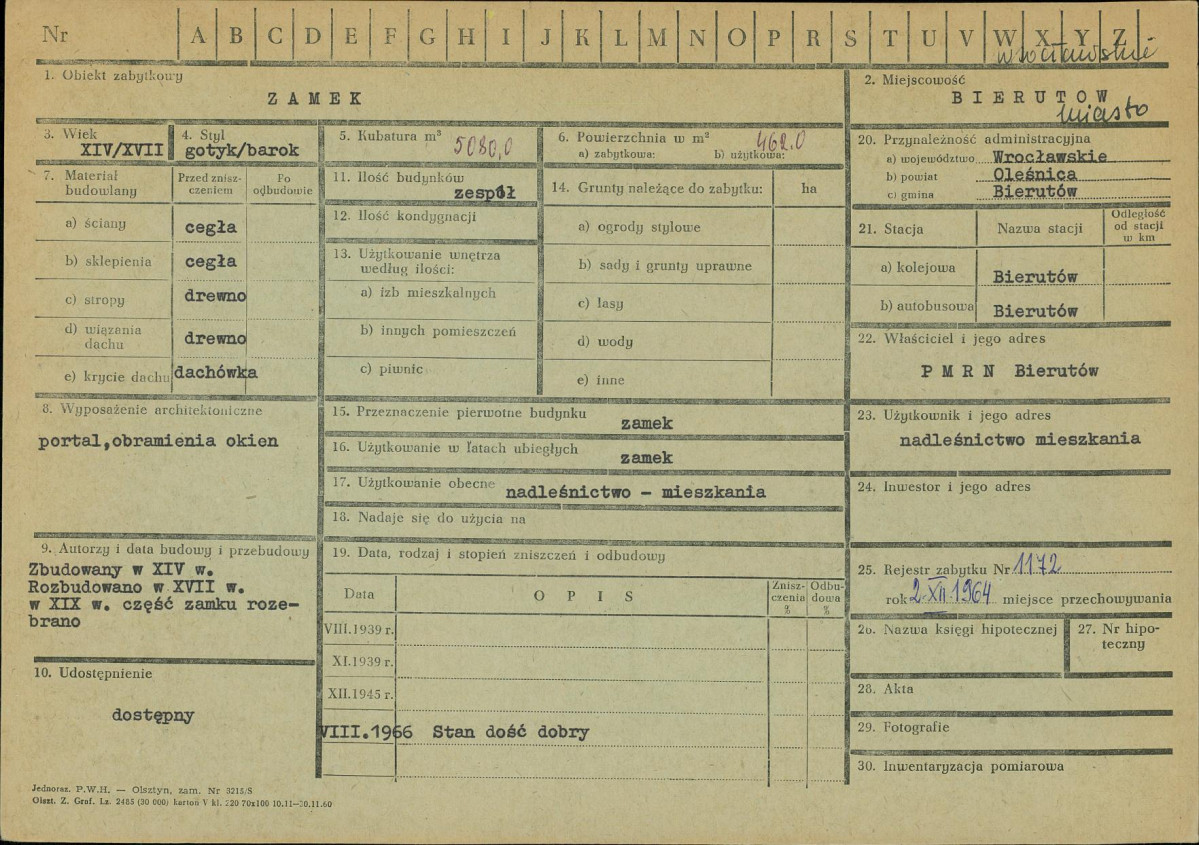 Nr A B C D E F G H I J K L M N O P R S T U V W X Y Z
wrocławskie
1. Obiekt zabytkowy
ZAMEK
2. Miejscowość
BIERUTOW
miasto
3. Wiek
XIV/XVII
4. Styl
gotyk/barok
5. Kubatura m³ 5080,0
6. Powierzchnia w m² 462.0
a) zabytkowa: b) użytkowa:
7. Materiał budowlany
Przed zniszczeniem
Po odbudowie
a) ściany cegła
b) sklepienia cegła
c) stropy drewno
d) wiązania dachu drewno
e) krycie dachu dachówka
8. Wyposażenie architektoniczne
portal,obramienia okien
9. Autorzy i data budowy i przebudowy
Zbudowany w XIV w.
Rozbudowano w XVII w.
w XIX w. część zamku roze-
brano
10. Udostępnienie
dostępny
11. Ilość budynków
zespół
12. Ilość kondygnacji
13. Użytkowanie wnętrza
według ilości:
a) izb mieszkalnych
b) innych pomieszczeń
c) piwnic
14. Grunty należące do zabytku: ha
a) ogrody stylowe
b) sady i grunty uprawne
c) lasy
d) wody
e) inne
15. Przeznaczenie pierwotne budynku
zamek
16. Użytkowanie w latach ubiegłych
zamek
17. Użytkowanie obecne nadleśnictwo – mieszkania
18. Nadaje się do użycia na
19. Data, rodzaj i stopień zniszczeń i odbudowy
Data OPIS
Znisz-
czenia
%
Odbu-
dowa
%
VIII.1939 r.
XI.1939 r.
XII.1945 r.
VIII.1966 Stan dość dobry
20. Przynależność administracyjna
a) województwo Wrocławskie
b) powiat Oleśnica
c) gmina Bierutów
21. Stacja
Nazwa stacji
Odległość
od stacji
w km
a) kolejowa Bierutów
b) autobusowa Bierutów
22. Właściciel i jego adres
PMRN Bierutów
23. Użytkownik i jego adres
nadleśnictwo mieszkania
24. Inwestor i jego adres
25. Rejestr zabytku Nr 1172
rok 2 XII 1964 miejsce przechowywania
26. Nazwa księgi hipotecznej
27. Nr hipo-
teczny
28. Akta
29. Fotografie
30. Inwentaryzacja pomiarowa
Jednoraz. P.W.H. — Olsztyn, zam. Nr 3215/S
Olszt. Z. Graf. Lz. 2485 (30 000) karton V kl. 220 70x100 10.11—30.11.60